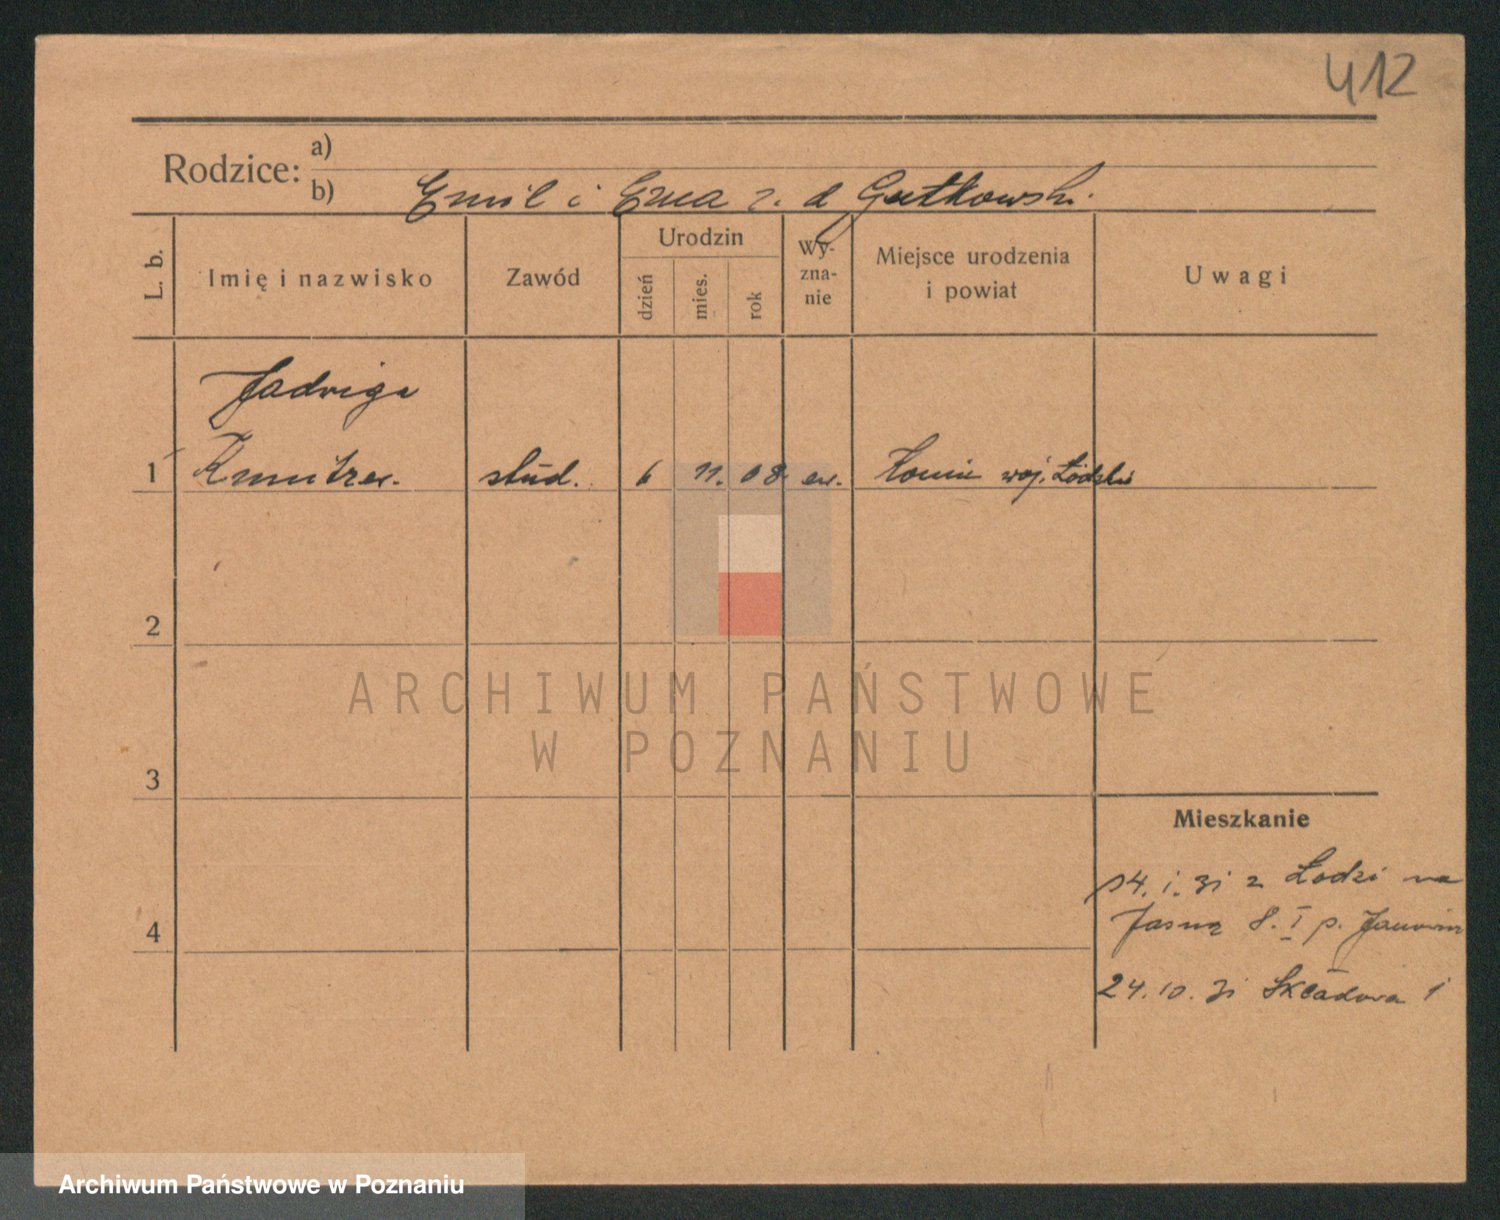 412
Rodzice: a)
b) Emil i Erna z. d Gutkowski.
L. b. Imię i nazwisko Zawód Urodzin dzień mies. rok Wy-zna-nie Miejsce urodzenia i powiat Uwagi
Jadwiga
1 stud. 6 11. 08 ew. Konin woj. Łódzkie
2
ARCHIWUM PAŃSTWOWE
W POZNANIU
3
Mieszkanie
14. i. 31 z Łodzi na
4 Jasną 8. I p.
24. 10. 31 Składowa 1
Archiwum Państwowe w Poznaniu